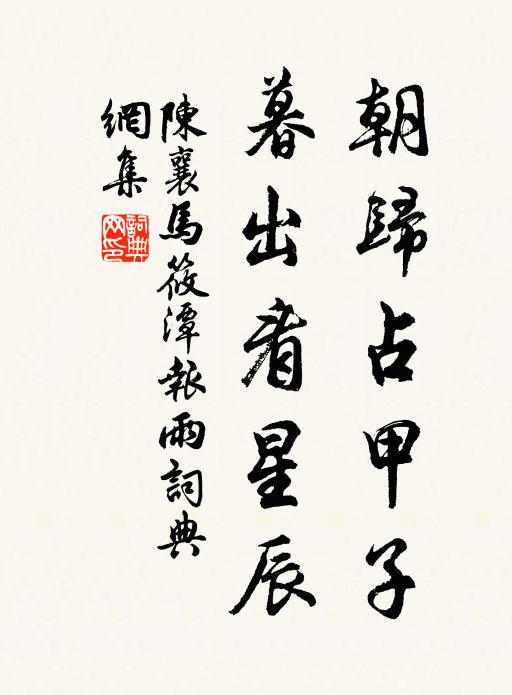 朝歸占甲子
暮出看星辰
陳襄馬筱潭報雨詞典
網集
詞典
网印